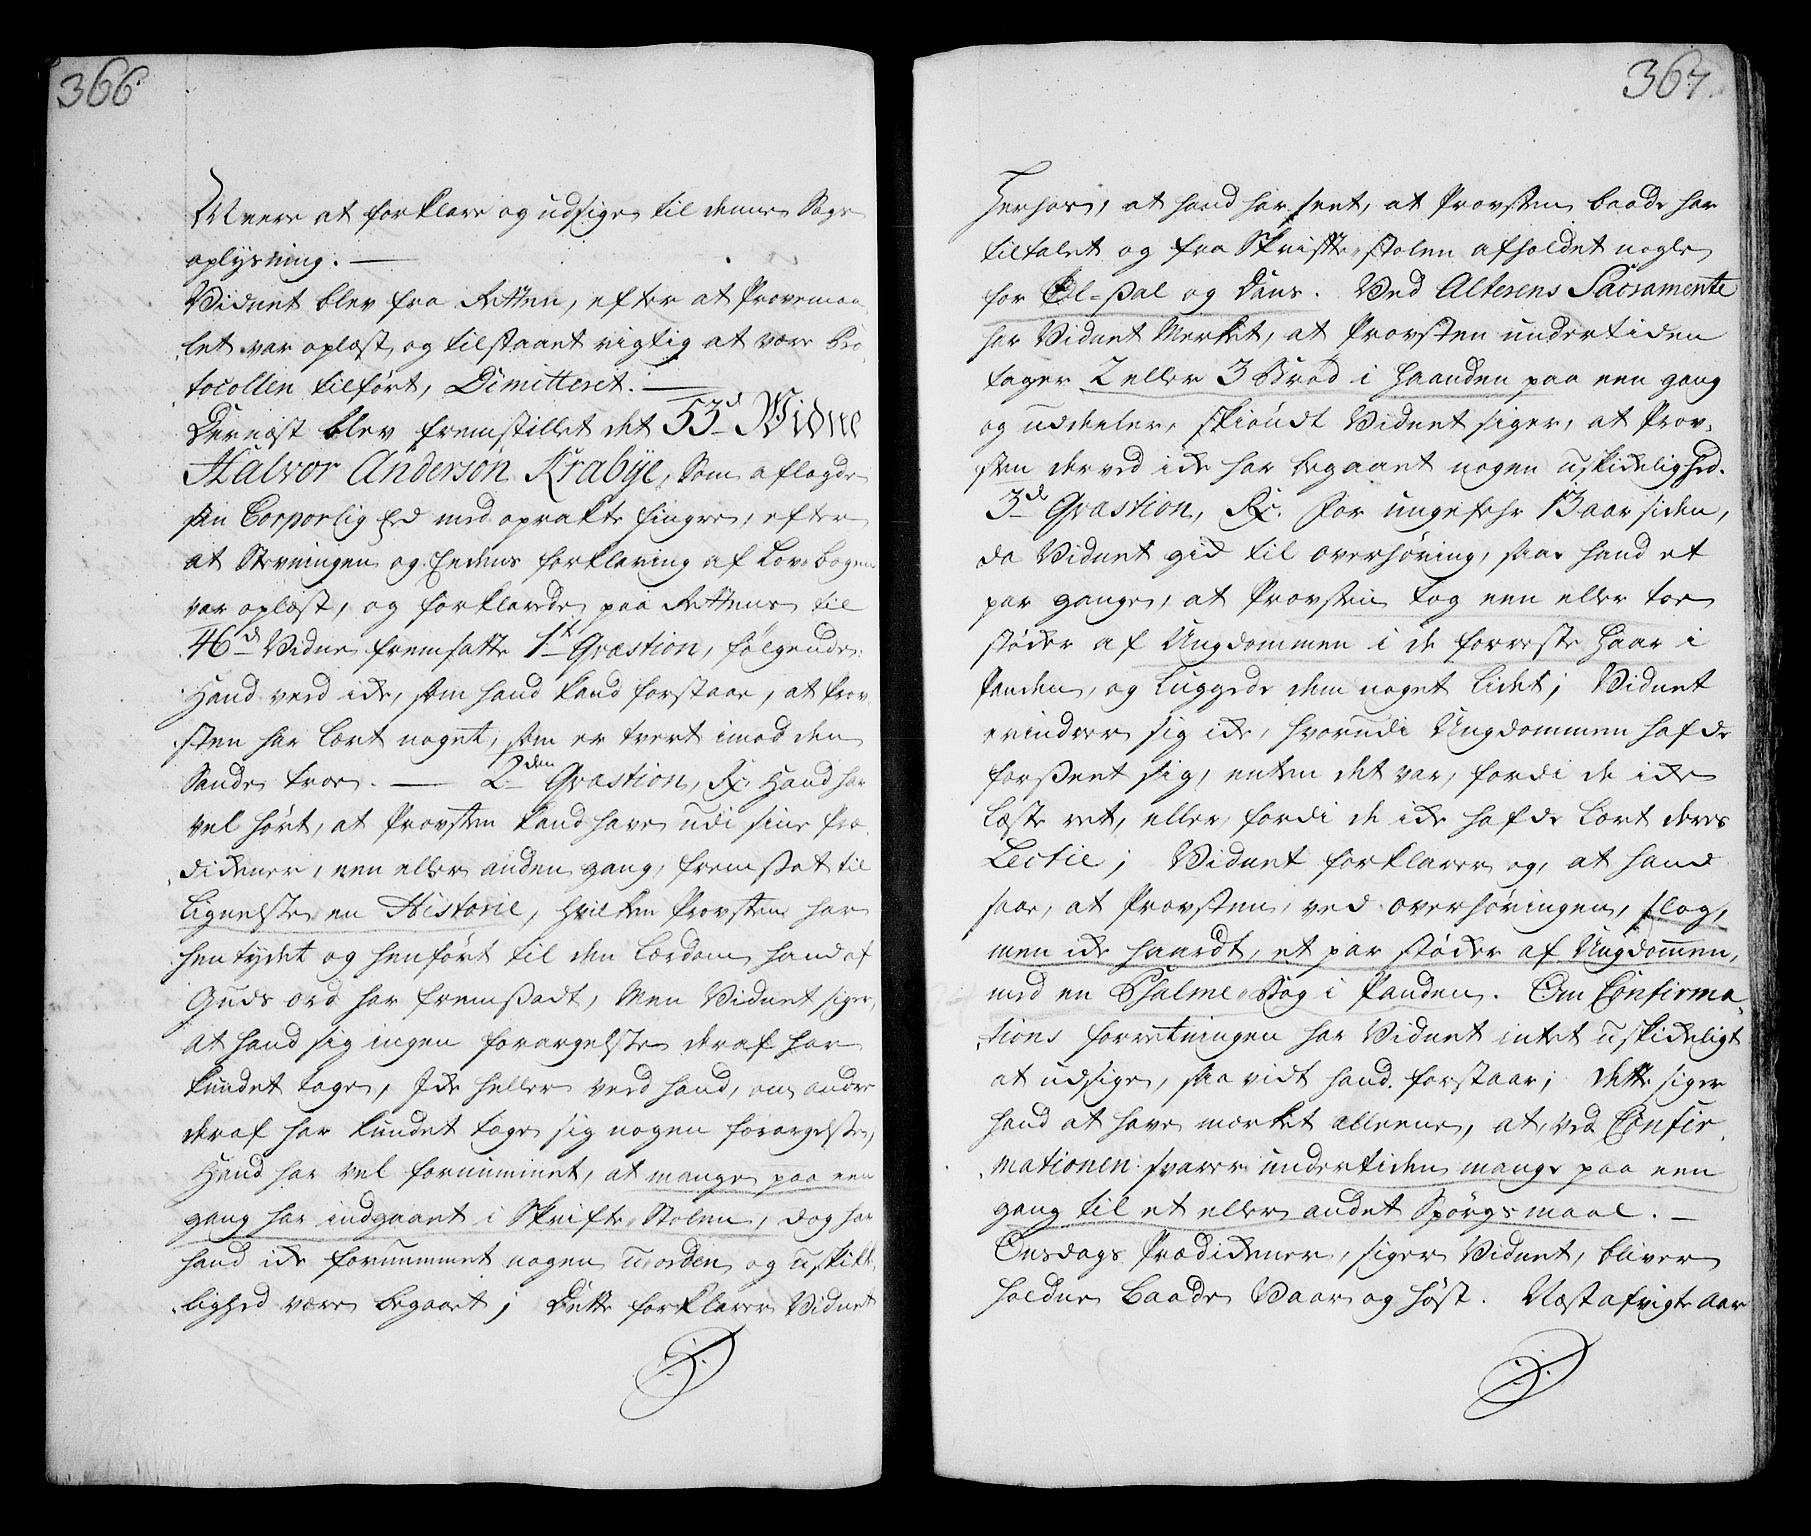 366.
Meere at forklare og udsige til denne Sags
oplysning. —
Vidnet blev fra Retten, efter at Provemaa-
let var oplæst, og tilstaaet rigtig at være Pro-
tocollen tilført, Dimitteret. —
Dernæst blev fremstillet det 53d Vidne
Halvor Andersøn Krabye, Som aflagde
sin Corporlig Eed med oprakte fingre, efter
at Stevningen og Eedens forklaring af Lov-bogen
var oplæst, og forklarede paa Rettens til
46d Vidne fremsatte 1st Qvæstion, følgende:
Hand veed icke, som hand kand forstaae, at Prov-
sten har lært noget, som er tvert imod den
Sande troe. — 2den Qvæstion, Rx: Hand har
vel hørt, at Provsten kand have udi sine Præ-
dickener, een eller anden gang, fremsat til
Lignelse en Historie, hvilken Provsten har
hentydet og henført til den Lærdom hand af
Guds ord har fremsadt, Men Vidnet siger,
at hand sig ingen forargelse deraf har
kundet tage, Icke heller veed hand, om andre
deraf har kundet tage sig nogen forargelse,
Hand har vel fornummet, at mange paa een
gang har indgaaet i Skrifte-Stolen, dog har
hand icke fornummet nogen uorden og uskike-
lighed være begaaet; Dette forklarer Vidnet
367.
Herhos, at hand har seet, at Provsten baade har
tiltalet og fra Skrifte-stolen afholdet nogle
for Øl-sal og Dans. Ved Alterens Sacramente
har Vidnet Merket, at Provsten undertiden
tager 2 eller 3 Brød i haanden paa een gang
og uddeeler, skiøndt Vidnet siger, at Prov-
sten derved icke har begaaet nogen uskickelighed.
3de Qvæstion, Rx: For ungefehr 13 aar siden,
da Vidnet gick til overhøring, saae hand et
par gange, at Provsten tog een eller toe
støcker af Ungdommen i de forreste Haar i
Panden, og luggede dem noget lidet; Vidnet
erindrer sig icke, hvorudi Ungdommen hafde
forseet sig, enten det var, fordi de icke
læste ret, eller fordi de icke hafde lært deres
Lectie; Vidnet forklarer og, at hand
saae, at Provsten, ved overhøringen, slog,
men icke haardt, et par støcker af Ungdommen,
med en Psalme-Bog i Panden. Om Confirma-
tions forretningen har Vidnet intet uskickeligt
at udsige, saa vidt hand forstaar; dette siger
hand at have mærket alleene, at, ved Confir-
mationen svarer undertiden mange paa een
gang til et eller andet Spørgsmaal. —
Onsdags Prædickener, siger Vidnet, bliver
holdne baade Vaar og høst. Næstafvigte Aar